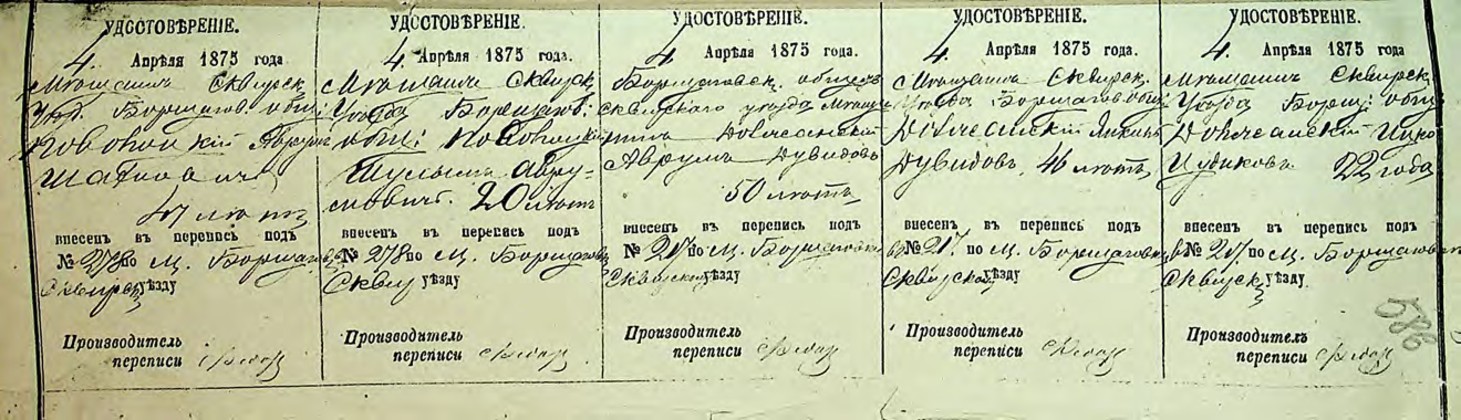 УДОСТОВѢРЕНІЕ.
4 Апрѣля 1875 года
Мѣщанинъ Сквирск.
Уѣз. Борщагов. общ:
Шапсовичъ
47 лѣтъ
внесенъ въ перепись подъ
№ 278 по м. Борщагов
Сквирск уѣзду
Производитель
переписи
УДОСТОВѢРЕНІЕ.
4 Апрѣля 1875 года.
Мѣщанинъ Сквирск
Уѣзда Борщагов:
общ:
20 лѣтъ
внесенъ въ перепись подъ
№ 278 по м. Борщагов
Сквир уѣзду
Производитель
переписи
УДОСТОВѢРЕНІЕ.
4 Апрѣля 1875 года.
Борщаговск. общес
Сквирскаго уѣзда Мѣщан
нинъ
Аврумъ Дувидовъ
50 лѣтъ
внесенъ въ перепись подъ
№ 217 по м. Борщаговк
Сквирском уѣзду
Производитель
переписи
УДОСТОВѢРЕНІЕ.
4 Апрѣля 1875 года.
Мѣщанинъ Сквирск.
Уѣзда Борщагов общ
Дувидовъ, 46 лѣтъ
внесенъ въ перепись подъ
№ 217. по м. Борщаговк
Сквирской уѣзду
Производитель
переписи
УДОСТОВѢРЕНІЕ.
4 Апрѣля 1875 года
Мѣщанинъ Сквирск
Уѣзда Борщ: общ
22 года
внесенъ въ перепись подъ
№ 217 по м. Борщаговк
Сквирск уѣзду.
Производитель
переписи
588